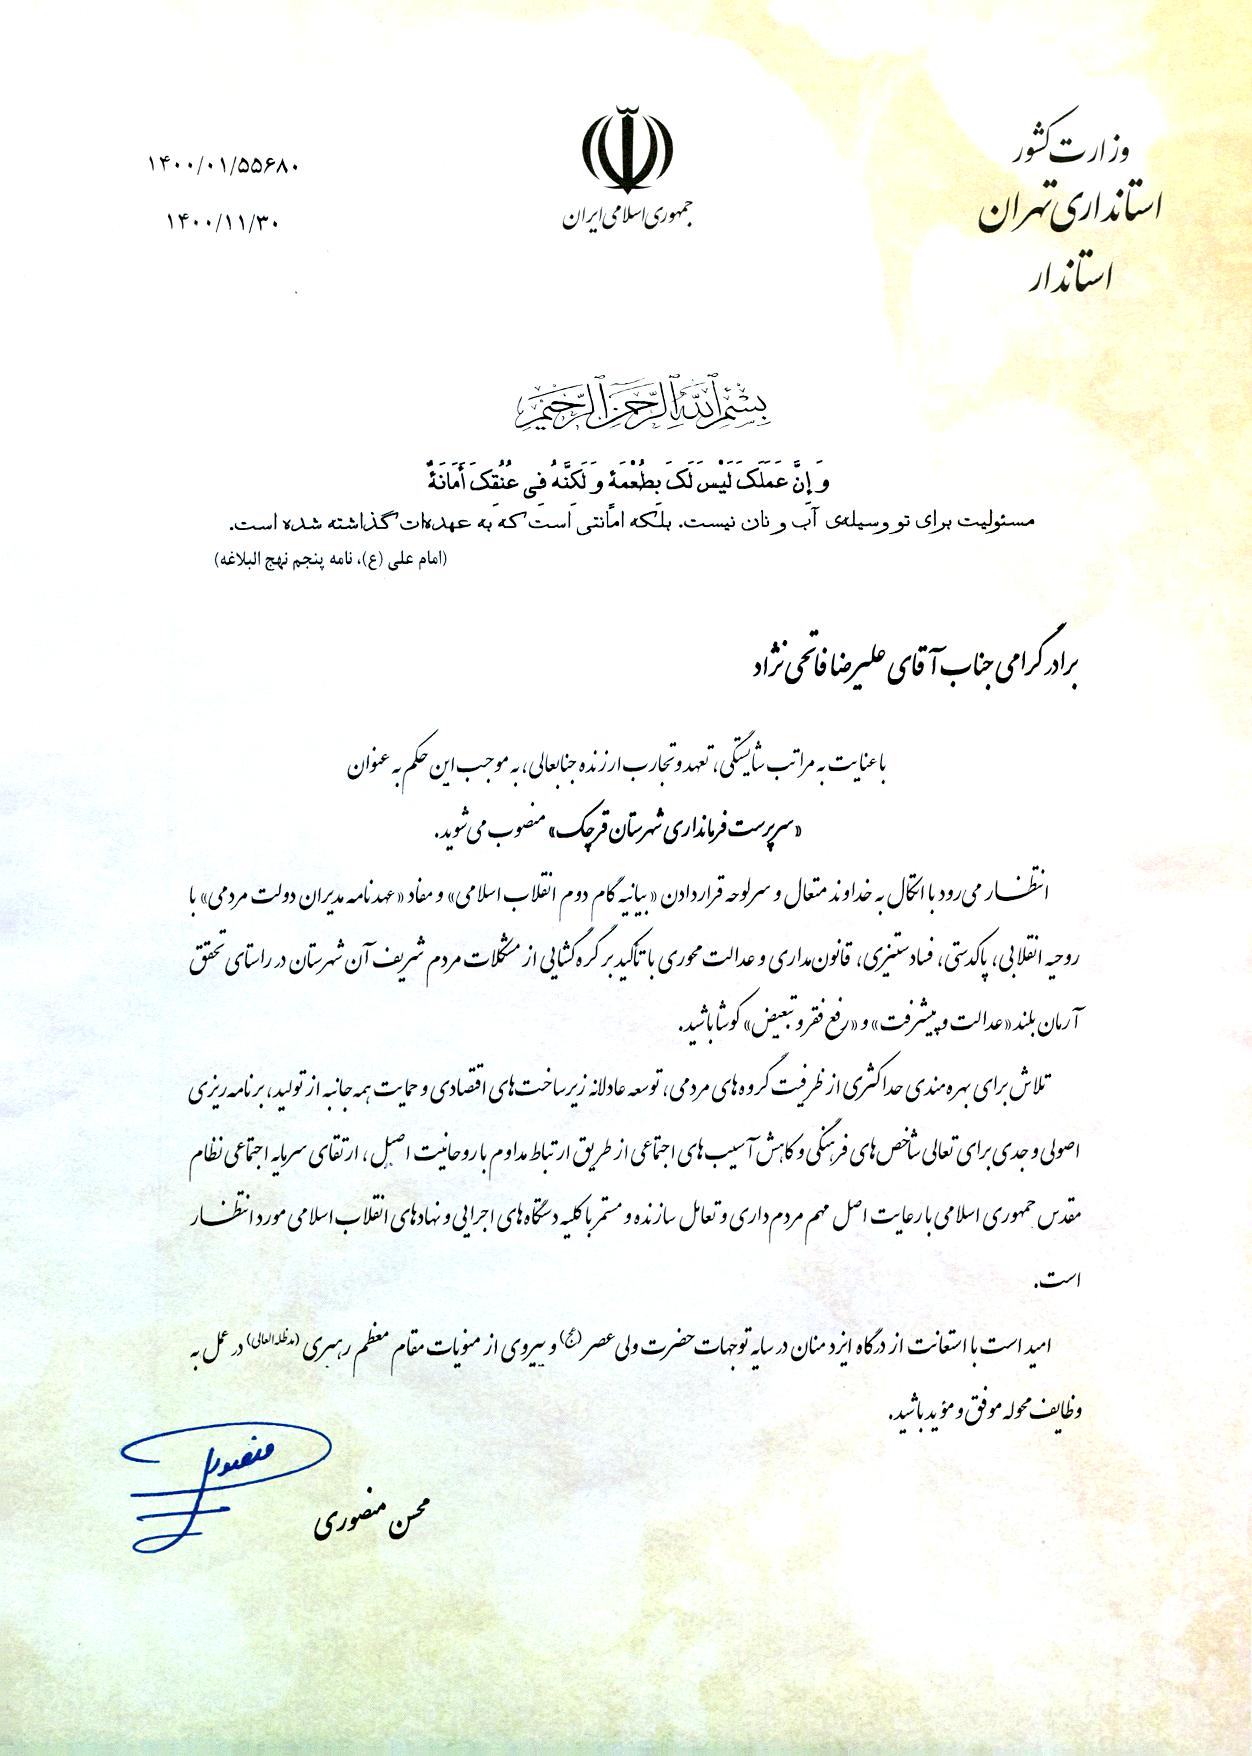 وزارت کشور
استانداری تهران
استاندار
جمهوری اسلامی ایران
۱۴۰۰/۰۱/۵۵۶۸۰
۱۴۰۰/۱۱/۳۰
بِسْمِ ٱللَّهِ ٱلرَّحْمَٰنِ ٱلرَّحِيمِ
وَ إِنَّ عَمَلَکَ لَیْسَ لَکَ بِطُعْمَةٍ وَ لَکِنَّهُ فِی عُنُقِکَ أَمَانَةٌ
مسئولیت برای تو وسیله‌ی آب و نان نیست. بلکه امانتی است که به عهده‌ات گذاشته شده است.
(امام علی (ع)، نامه پنجم نهج البلاغه)
برادر گرامی جناب آقای علیرضا فاتحی نژاد
با عنایت به مراتب شایستگی، تعهد و تجارب ارزنده جنابعالی، به موجب این حکم به عنوان
«سرپرست فرمانداری شهرستان قرچک» منصوب می‌شوید.
انتظار می‌رود با اتکال به خداوند متعال و سرلوحه قراردادن «بیانیه گام دوم انقلاب اسلامی» و مفاد «عهدنامه مدیران دولت مردمی» با
روحیه انقلابی، پاکدستی، فسادستیزی، قانون‌مداری و عدالت محوری با تأکید بر گره‌گشایی از مشکلات مردم شریف آن شهرستان در راستای تحقق
آرمان بلند «عدالت و پیشرفت» و «رفع فقر و تبعیض» کوشا باشید.
تلاش برای بهره‌مندی حداکثری از ظرفیت گروه‌های مردمی، توسعه عادلانه زیرساخت‌های اقتصادی و حمایت همه جانبه از تولید، برنامه‌ریزی
اصولی و جدی برای تعالی شاخص‌های فرهنگی و کاهش آسیب‌های اجتماعی از طریق ارتباط مداوم با روحانیت اصیل، ارتقای سرمایه اجتماعی نظام
مقدس جمهوری اسلامی با رعایت اصل مهم مردم داری و تعامل سازنده و مستمر با کلیه دستگاه‌های اجرایی و نهادهای انقلاب اسلامی مورد انتظار
است.
امید است با استعانت از درگاه ایزد منان در سایه توجهات حضرت ولی عصر (عج) و پیروی از منویات مقام معظم رهبری (مدظله العالی) در عمل به
وظایف محوله موفق و مؤید باشید.
منصوری
محسن منصوری